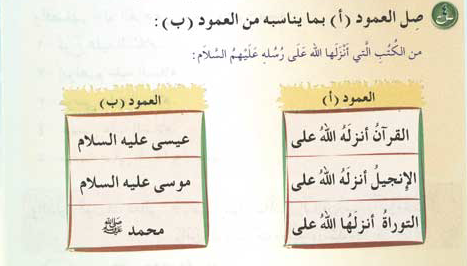 صِل العمود (أ) بما يناسبه من العمود (ب):
من الكُتُبِ الَّتي أَنْزَلَها اللهُ عَلَى رُسُلِهِ عَلَيْهِمُ السَّلَام:
العمود (أ)
القرآنُ أنزلَهُ اللهُ على
الإنجيلُ أنزلَهُ اللهُ على
التوراةُ أنزلَهُا اللهُ على
العمود (ب)
عيسى عليه السلام
موسى عليه السلام
محمد ﷺ